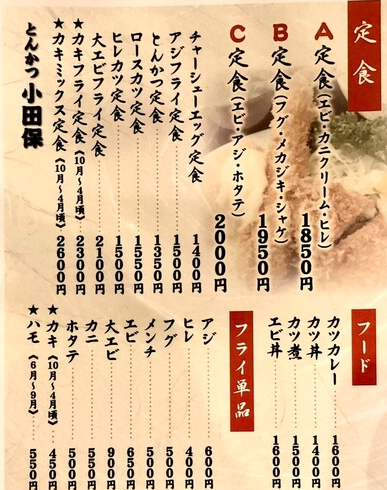 定食
A定食(エビ・カニクリーム・ヒレ) 1850円
B定食(フグ・メカジキ・シャケ) 1950円
C定食(エビ・アジ・ホタテ) 2000円
チャーシューエッグ定食 1400円
アジフライ定食 1500円
とんかつ定食 1350円
ロースカツ定食 1550円
ヒレカツ定食 1500円
大エビフライ定食 2100円
★カキフライ定食(10月〜4月頃) 2300円
★カキミックス定食(10月〜4月頃) 2600円
とんかつ 小田保
フード
カツカレー 1600円
カツ丼 1400円
カツ煮 1500円
エビ丼 1600円
フライ単品
アジ 600円
ヒレ 400円
フグ 500円
メンチ 500円
エビ 650円
大エビ 900円
カニ 550円
ホタテ 500円
★カキ(10月〜4月頃) 450円
★ハモ(6月〜9月) 550円